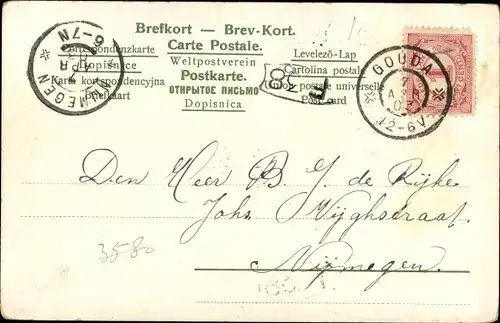 Brefkort — Brev-Kort.
Correspondenzkarte Carte Postale. Levelező-Lap
Dopisnice Weltpostverein Cartolina postale
Karta korespondencyjna Postkarte. postale universelle
Briefkaart ОТКРЫТОЕ ПИСЬМО Post card
Dopisnica
NIJMEGEN
6-7N
GOUDA
12-6V
1
Den Heer B. J. de Rijke
Joh. Vijghstraat
Nijmegen.
3580